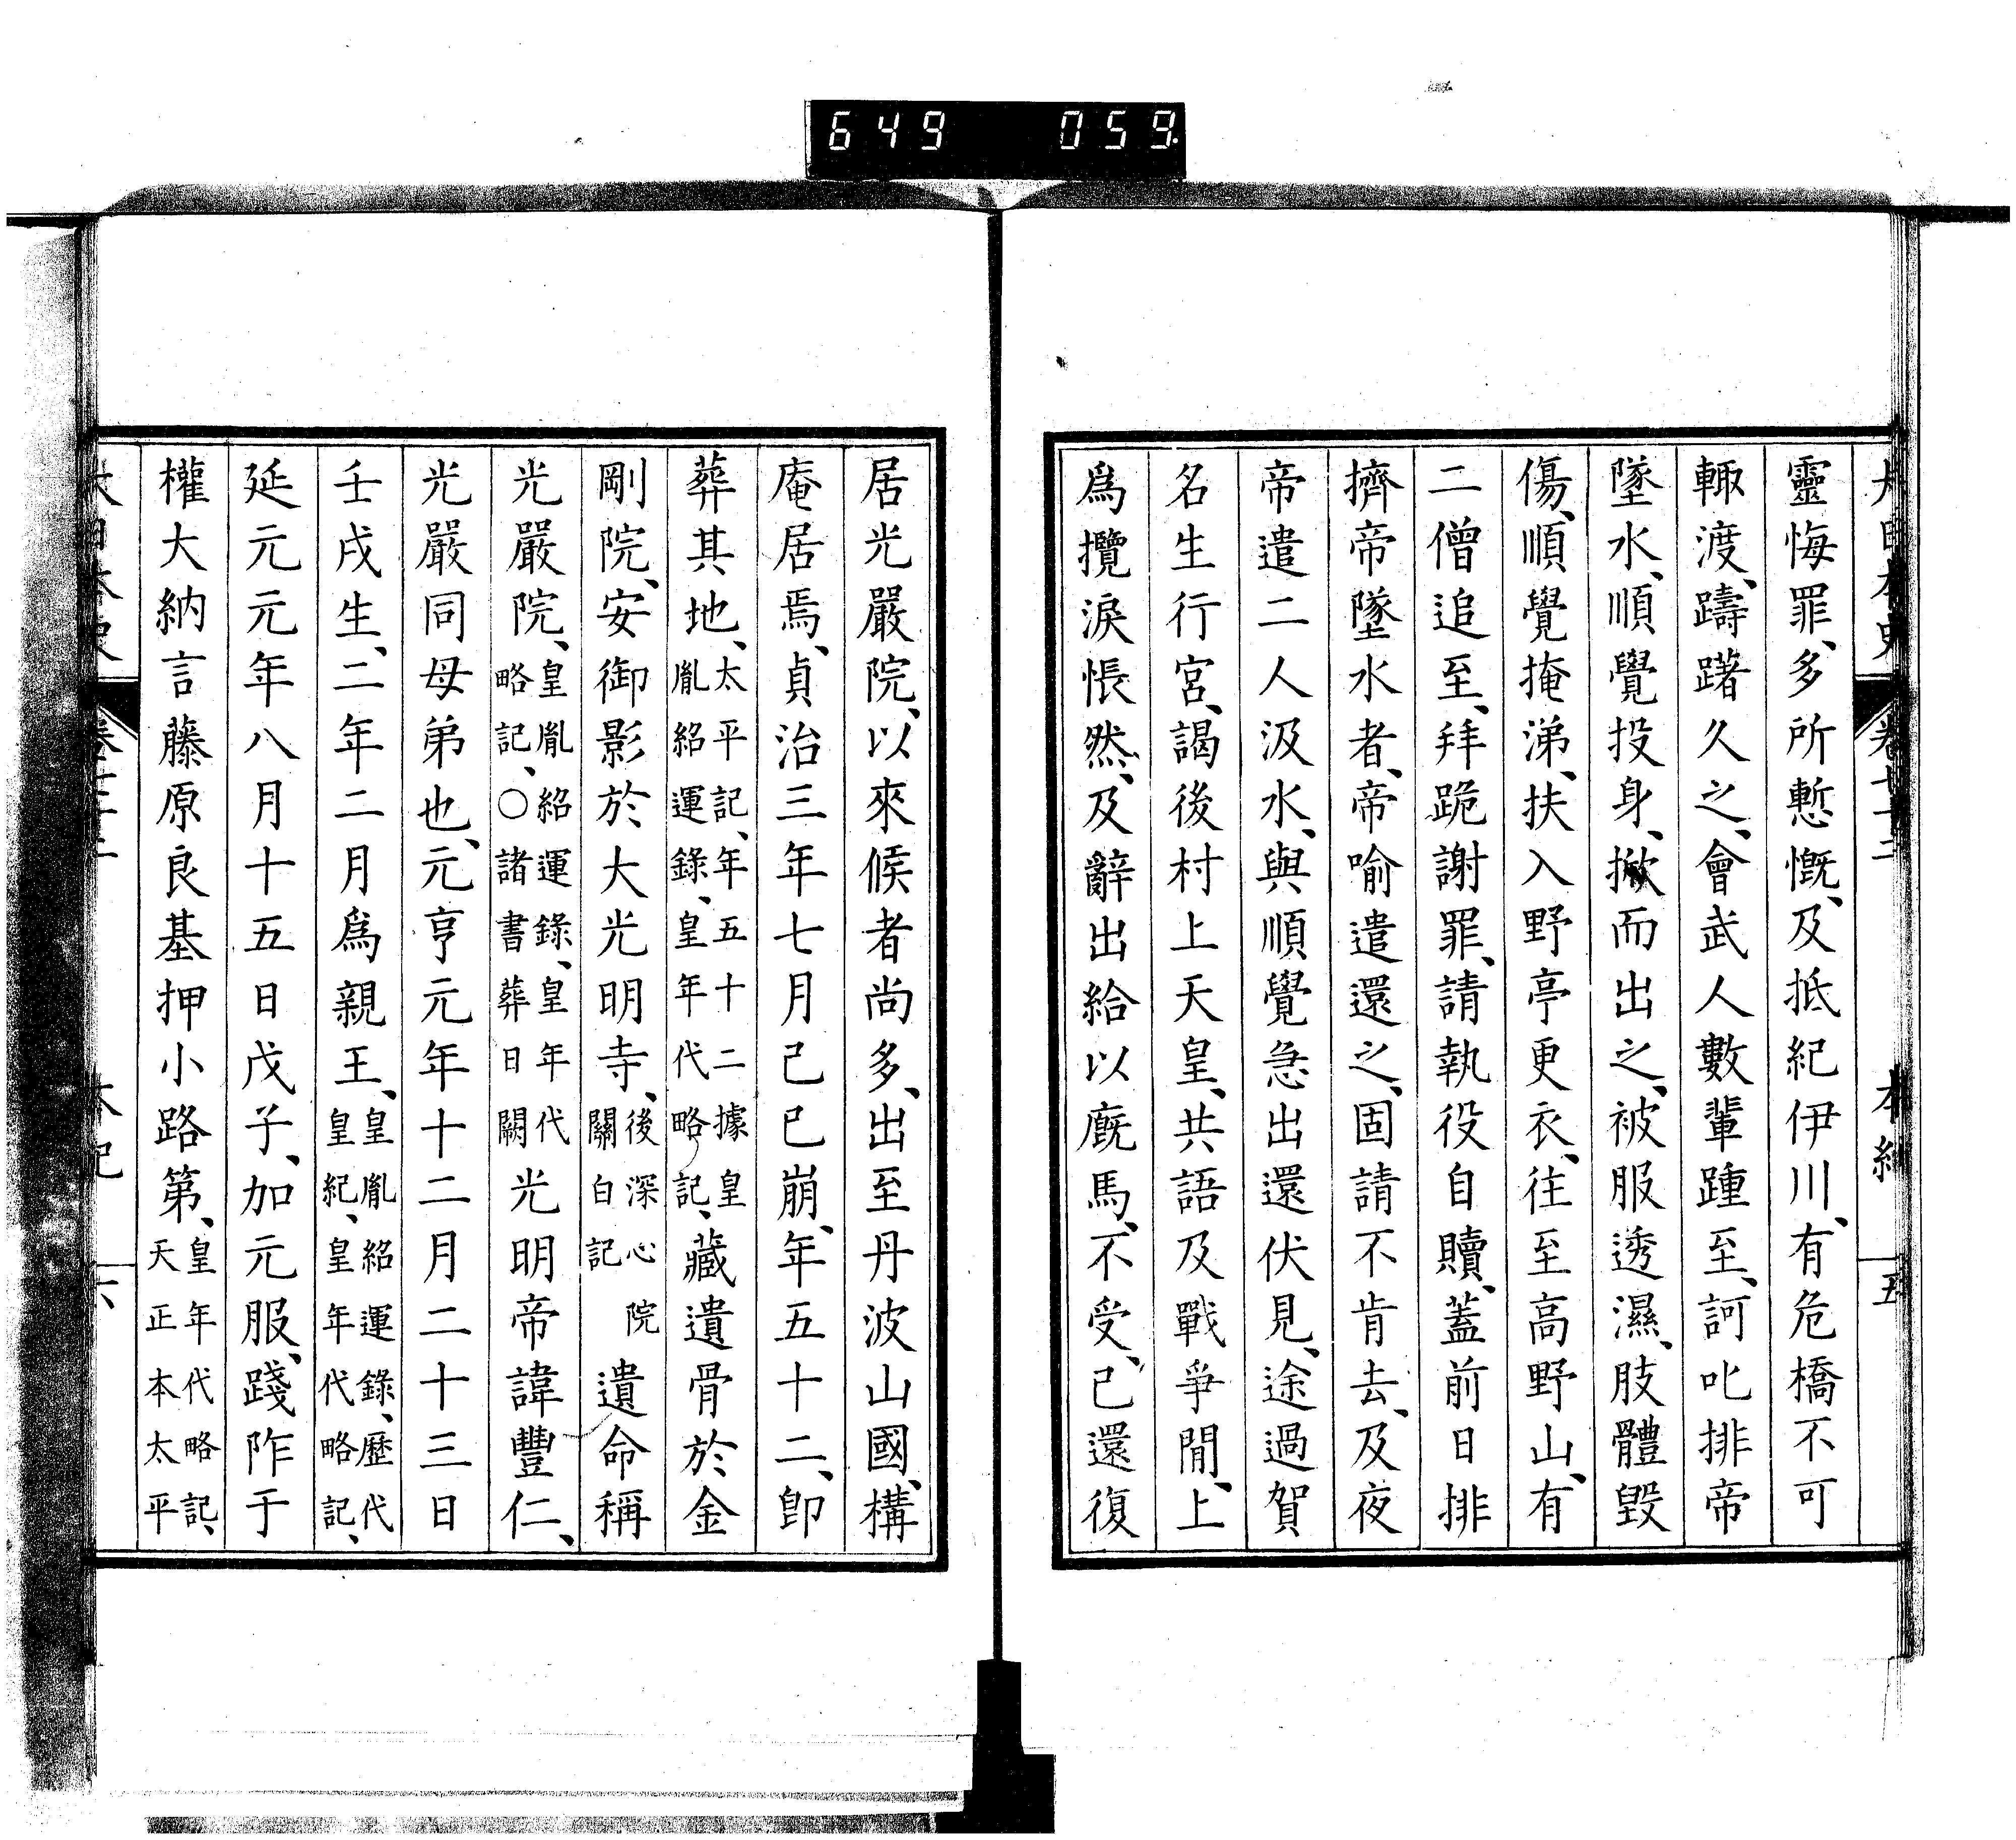 649 059.
大日本史 卷七十二 本紀 五
靈悔罪、多所慙慨、及抵紀伊川、有危橋不可
輙渡、躊躇久之、會武人數輩踵至、訶叱排帝
墜水、順覺投身、掀而出之、被服透濕、肢體毀
傷、順覺掩涕、扶入野亭更衣、往至高野山、有
二僧追至、拜跪謝罪、請執役自贖、蓋前日排
擠帝墜水者、帝喻遣還之、固請不肯去、及夜
帝遣二人汲水、與順覺急出還伏見、途過賀
名生行宮、謁後村上天皇、共語及戰爭閒、上
爲攬淚悵然、及辭出給以廐馬、不受、已還復
居光嚴院、以來候者尚多、出至丹波山國、構
庵居焉、貞治三年七月己巳崩、年五十二、卽
葬其地、太平記、年五十二據皇
胤紹運錄、皇年代略記、藏遺骨於金
剛院、安御影於大光明寺、後深心院
關白記遺命稱
光嚴院、皇胤紹運錄、皇年代
略記、○諸書葬日闕光明帝諱豐仁、
光嚴同母弟也、元亨元年十二月二十三日
壬戌生、二年二月爲親王、皇胤紹運錄、歷代
皇紀、皇年代略記、
延元元年八月十五日戊子、加元服、踐阼于
權大納言藤原良基押小路第、皇年代略記、
天正本太平
大日本史 卷七十二 本紀 六